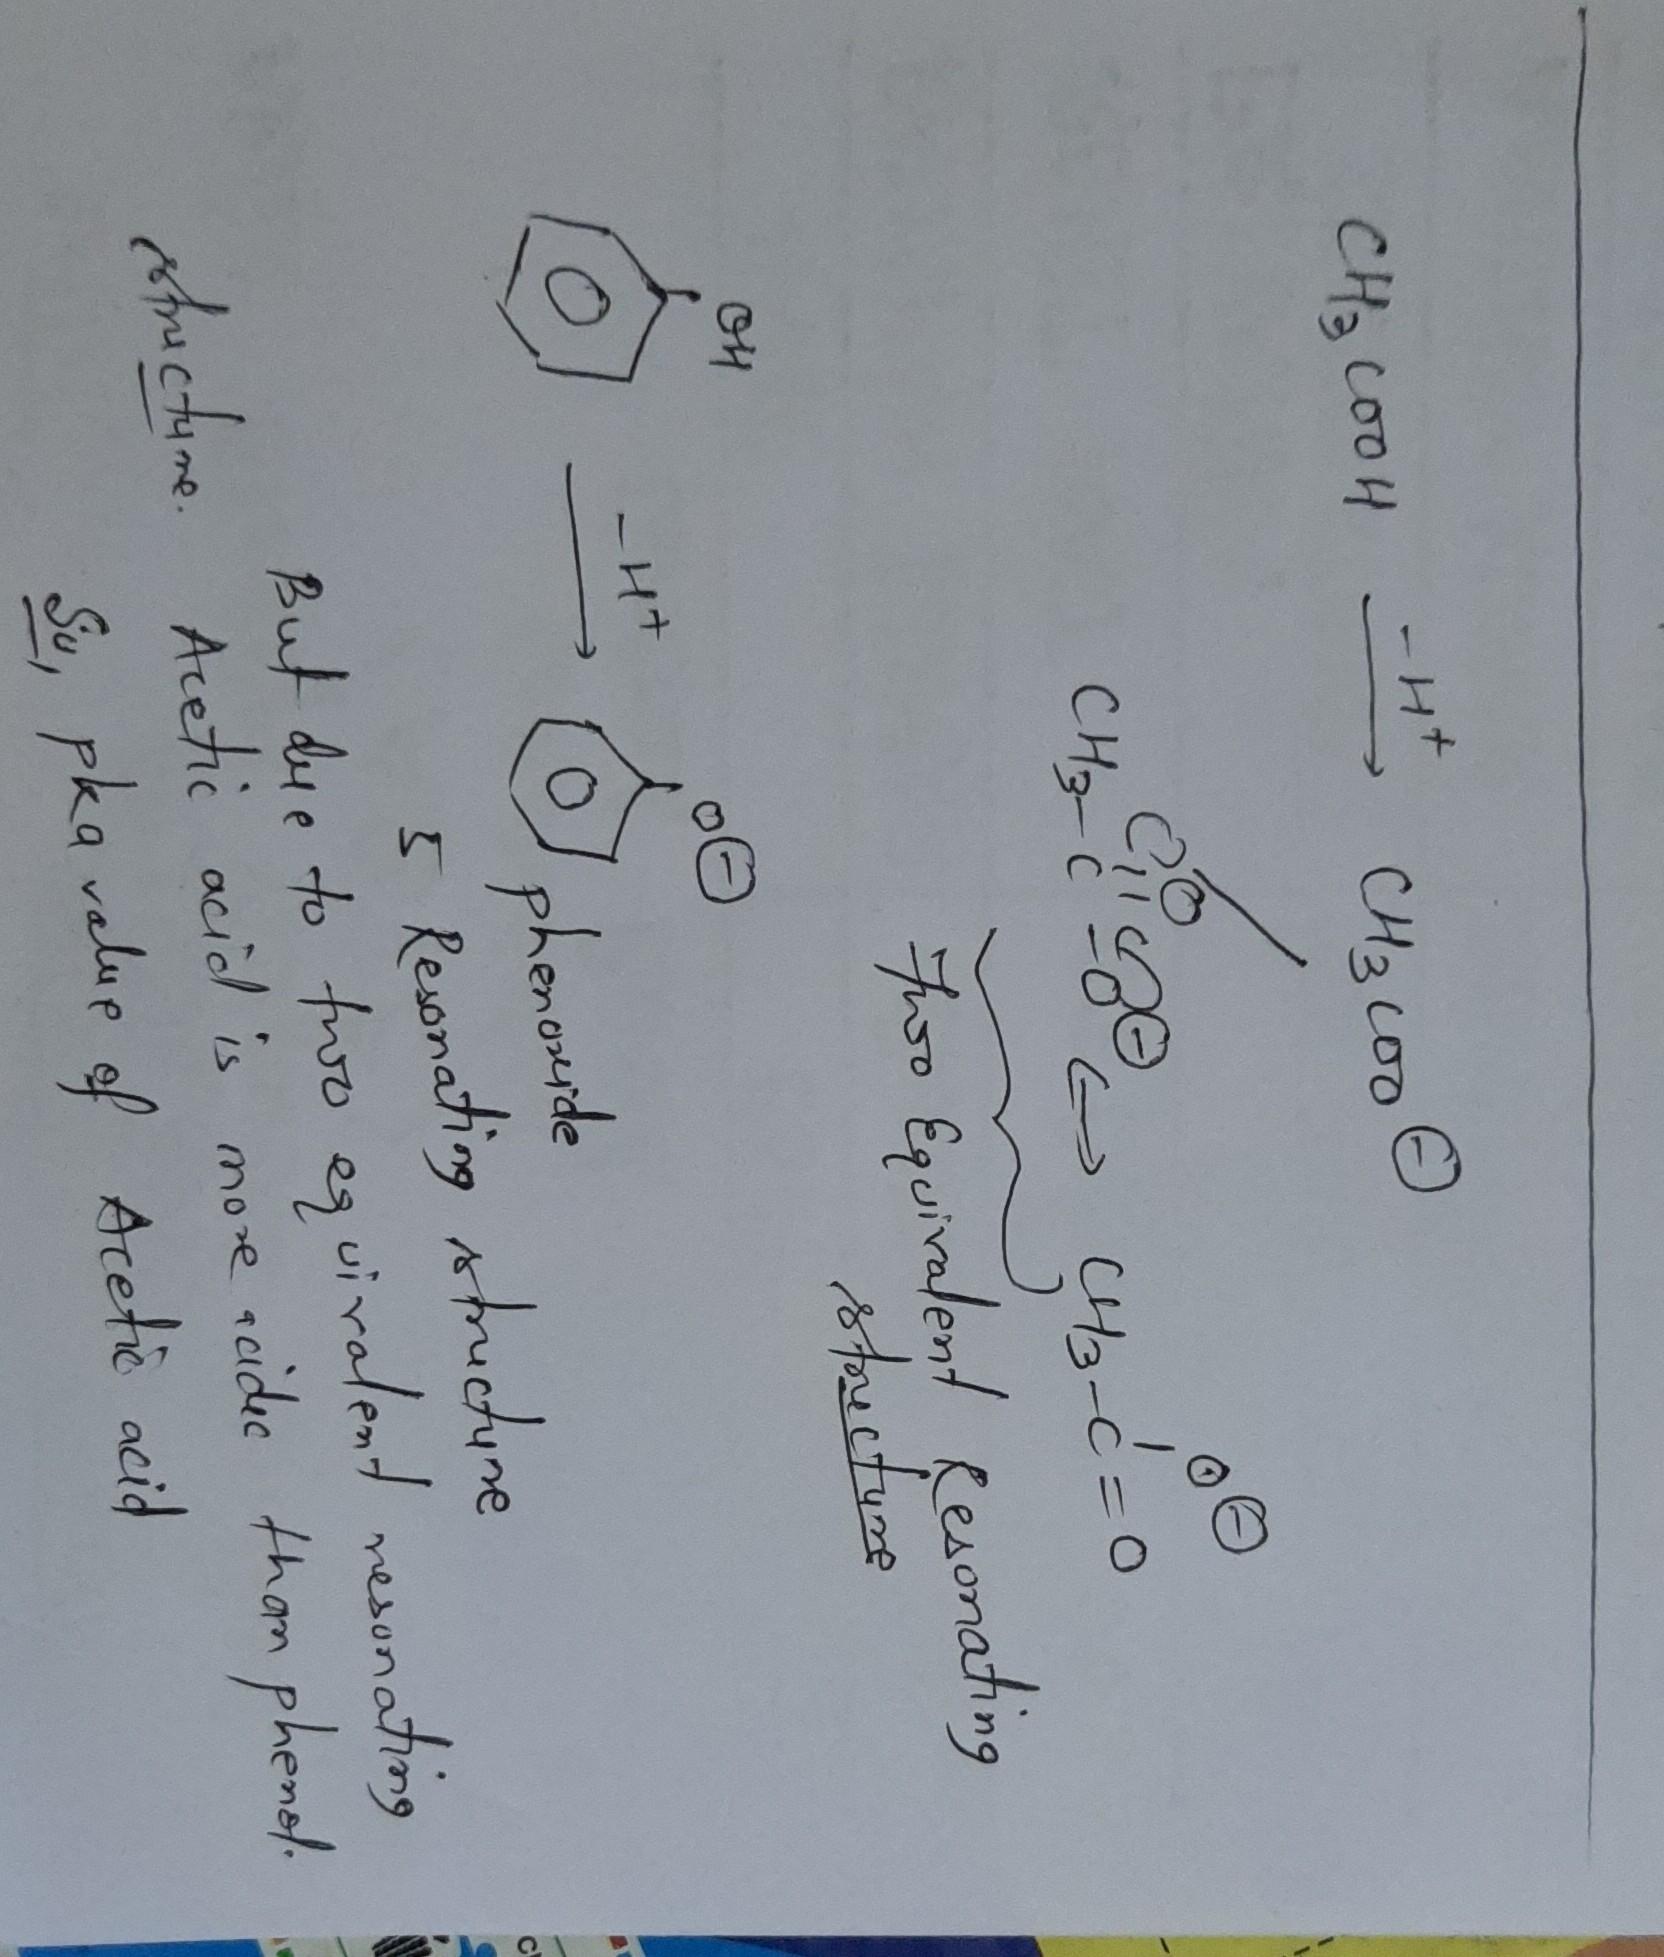 CH3COOH -H+ → CH3COO⊖
CH3-C(=O)-O⊖ ↔ CH3-C(-O⊖)=O
Two Equivalent Resonating
structure
OH -H+ → O⊖
phenoxide
5 Resonating structure
But due to two equivalent resonating
structure. Acetic acid is more acidic than phenol.
So, pka value of Acetic acid